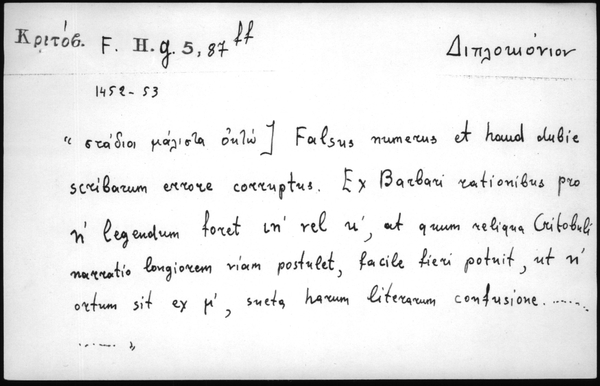 Κριτόβ. F. H.g. 5, 87 ff Διπλοκιόνιον
1452-53
" στάδιοι μάλιστα ὀκτώ] Falsus numerus et haud dubie
scribarum errore corruptus. Ex Barbari rationibus pro
η' legendum foret ιη' vel κ', at quum reliqua Critobuli
narratio longiorem viam postulet, facile fieri potuit, ut η'
ortum sit ex μ', sueta harum literarum confusione. ......
...... "